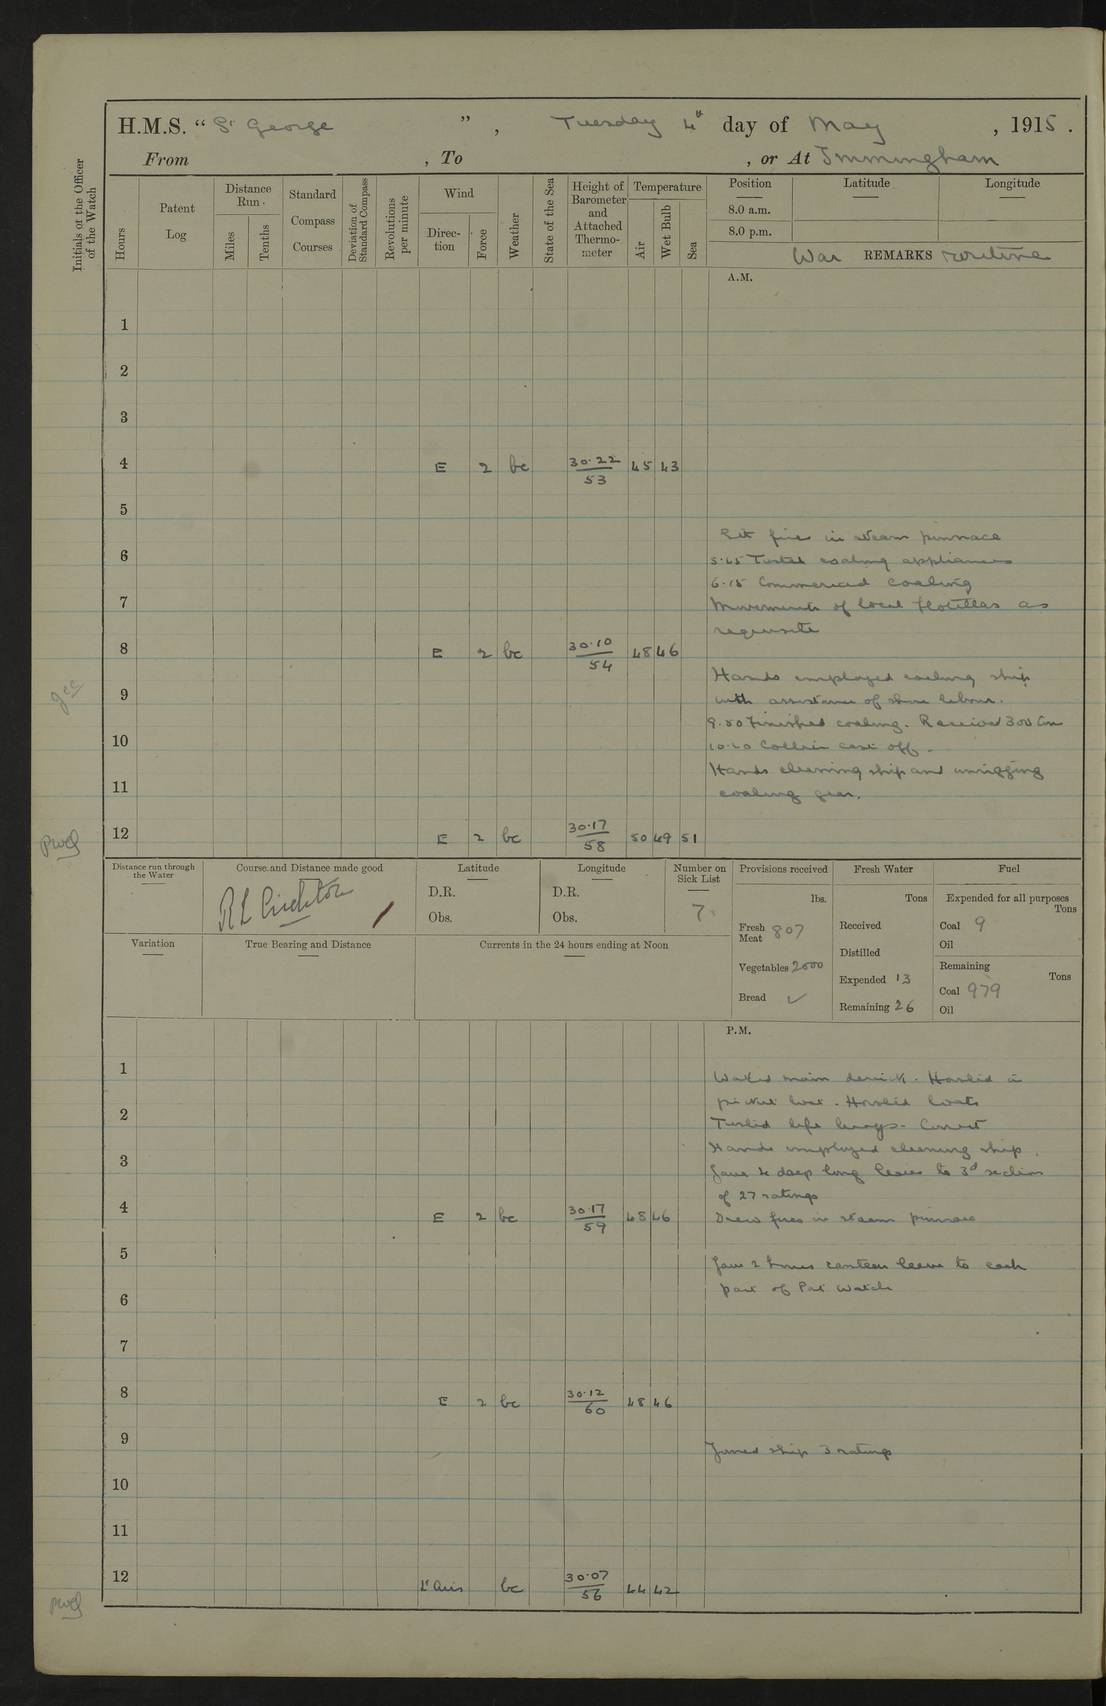 H.M.S. “ St George ” , Tuesday 4th day of May , 1915 .
From , To , or At Immingham
Initials of the Officer of the Watch
Hours
Patent Log
Distance Run.
Miles
Tenths
Standard Compass Courses
Deviation of Standard Compass
Revolutions per minute
Wind
Direction
Force
Weather
State of the Sea
Height of Barometer and Attached Thermometer
Temperature
Air
Wet Bulb
Sea
Position
Latitude
Longitude
8.0 a.m.
8.0 p.m.
War REMARKS routine
A.M.
1
2
3
4 E 2 bc 30.22 53 45 43
5
Lit fires in steam pinnace
6
5.45 Tested coaling appliances
6.15 Commenced coaling
7
Movements of local flotillas as
requisite
8 E 2 bc 30.10 54 48 46
Hands employed coaling ship
9
with assistance of shore labour.
9.50 Finished coaling. Received 300 tons
10
10.20 Collier cast off.
Hands cleaning ship and unrigging
11
coaling gear.
12 E 2 bc 30.17 58 50 49 51
Distance run through the Water
Course and Distance made good
R L Crichton
Latitude
D.R.
Obs.
Longitude
D.R.
Obs.
Number on Sick List
7
Provisions received
lbs.
Fresh Meat 807
Vegetables 2000
Bread ✓
Fresh Water
Tons
Received
Distilled
Expended 13
Remaining 26
Fuel
Expended for all purposes
Tons
Coal 9
Oil
Remaining
Tons
Coal 979
Oil
Variation
True Bearing and Distance
Currents in the 24 hours ending at Noon
P.M.
1
main derrick. Hoisted in
2
picket boat. Hoisted boats
Tested life buoys. Correct
Hands employed cleaning ship.
3
Gave 4 days long leave to 3d section
of 27 ratings
4 E 2 bc 30.17 59 48 46
Drew fires in steam pinnace
5
Gave 2 hours canteen leave to each
part of Port Watch
6
7
8 E 2 bc 30.12 60 48 46
9
Joined ship 3 ratings
10
11
12 Lt airs bc 30.07 56 44 42